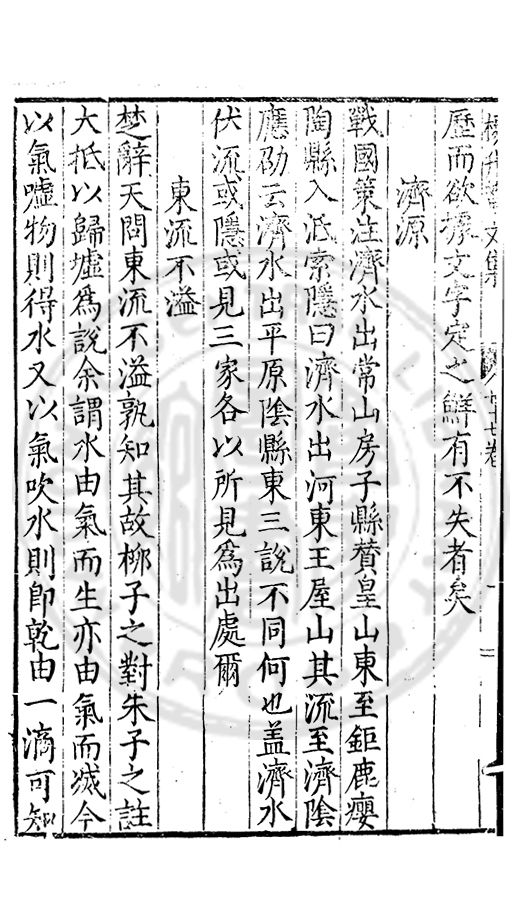 歷而欲據文字定之鮮有不失者矣
濟源
戰國策注濟水出常山房子縣賛皇山東至鉅鹿癭
陶縣入泜索隱曰濟水出河東王屋山其流至濟陰
應劭云濟水出平原陰縣東三說不同何也盖濟水
伏流或隱或見三家各以所見爲出處爾
東流不溢
楚辭天問東流不溢孰知其故柳子之對朱子之註
大抵以歸墟爲說余謂水由氣而生亦由氣而滅今
以氣噓物則得水又以氣吹水則卽乾由一滴可知